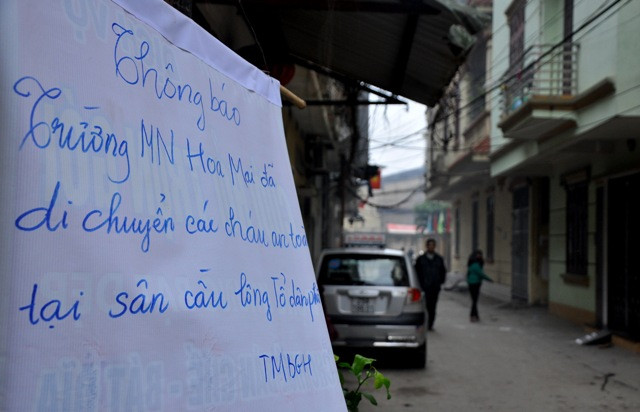 Thông báo
Trường MN Hoa Mai đã
di chuyển các cháu an toàn
tại sân cầu lông Tổ dân phố
TM BGH